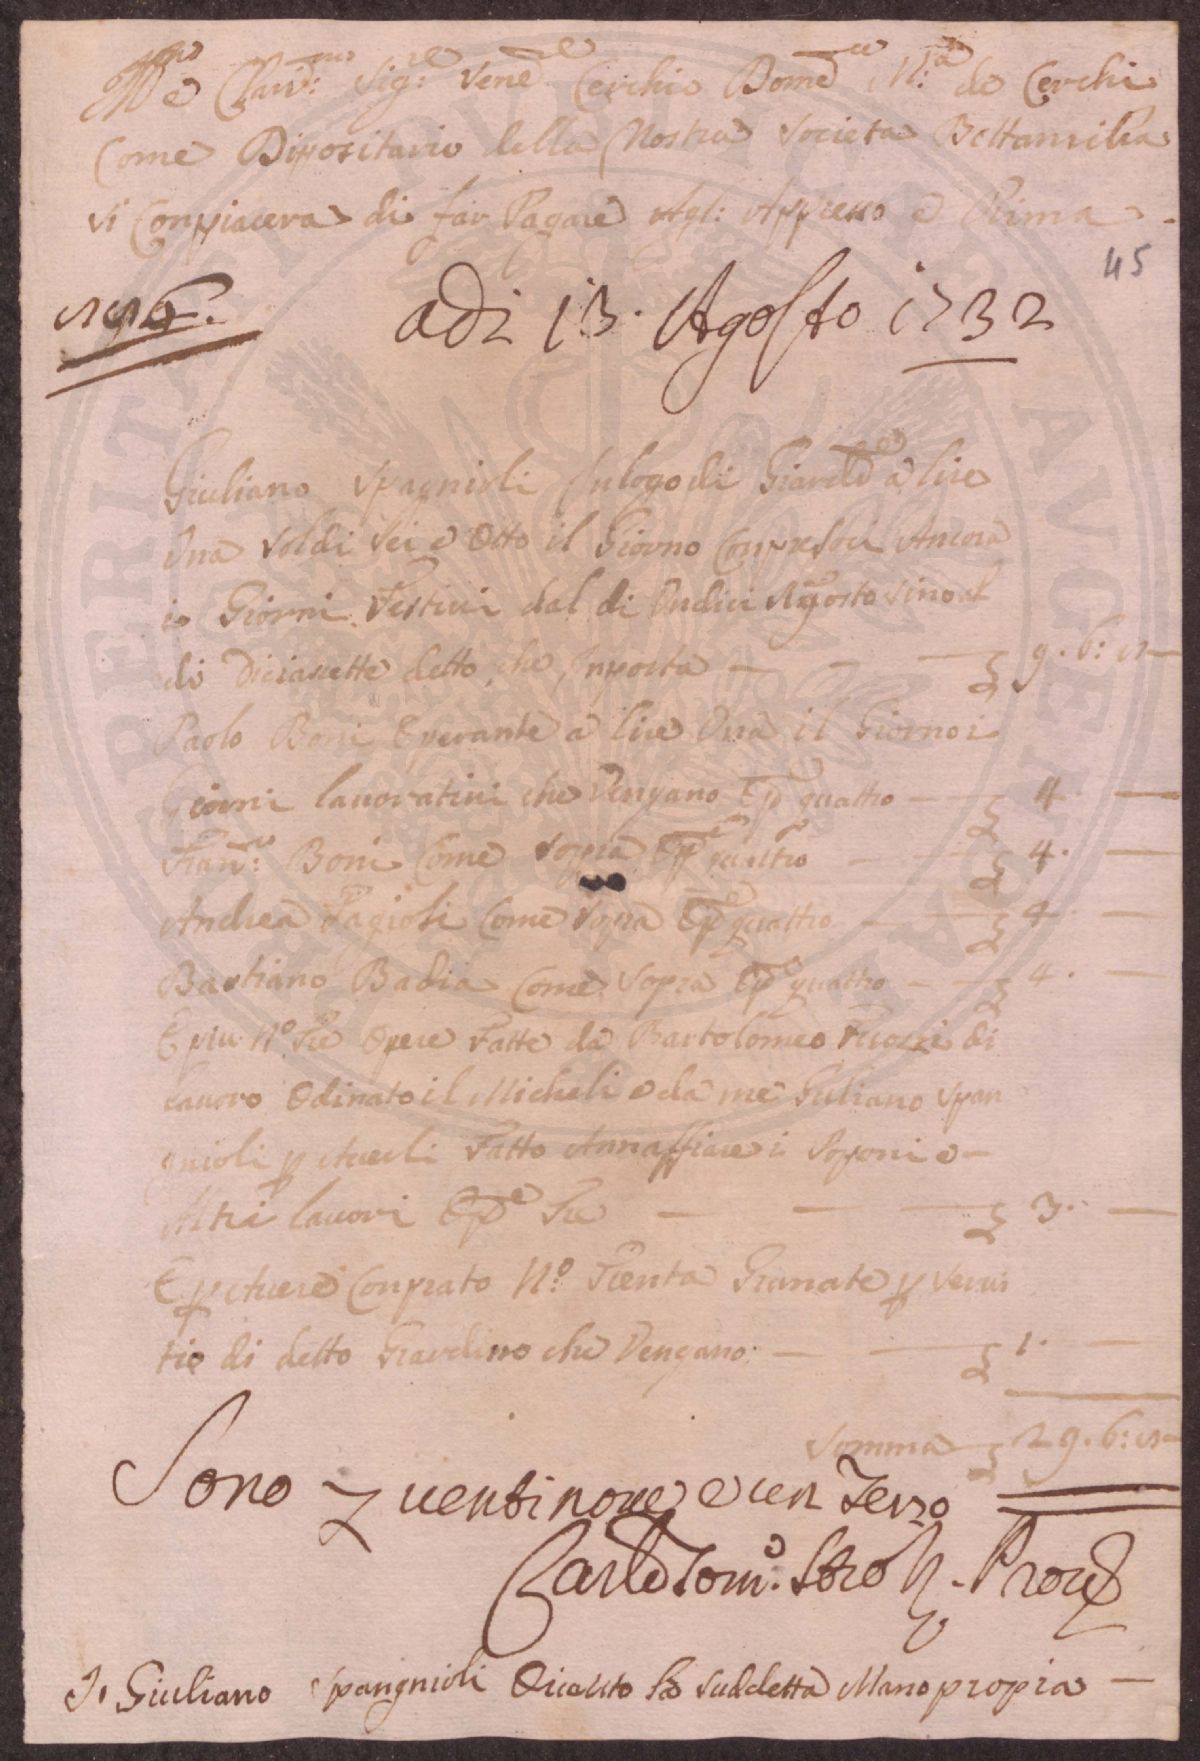 Ill.mo e Clariss.mo Sig.re Vene.e Cerchio Bome.co M.a de Cerchi
Come Dippositario della Nostra Societa Bottanicha
vi Conpiacera di far Pagare Agl: Appresso e Prima -
45
adi 13. Agosto 1732
Giuliano Spagnioli In logo di Giard.e a lire
Una Soldi Sei e Otto il Giorno Conpresoci Ancora
io Giorni Festivi dal di Undici Agosto sino al
di Diciasette detto, che Inporta — 9.6:8
Paolo Boni Operante a lire Una il Giorno i
Giorni lauoratiui che Vengano Op.e quattro — 4
Fran.co Boni Come Sopra Op.e quattro — 4.
Andrea Fagioli Come Sopra Op.e quattro — 4
Bastiano Badia Come Sopra Op.e quattro — 4.
E piu N.o Tre Opere Fatte da Bartolomeo di
lauoro Odinato il Micheli e da me Giuliano Span
gnioli p Auerli Fatto Annaffiare i Poponi e -
Altri lauori Op.e Tre — 3.
E p Auere Conprato N.o Trenta Granate p Serui
tio di detto Giardino che Vengano — 1.
Somma 29.6:8
Sono z uentinoue e un Terzo
Carlo Tom.o Stro Prou.e
Io Giuliano Spangnioli O iceuto la Suddetta Mano propria —